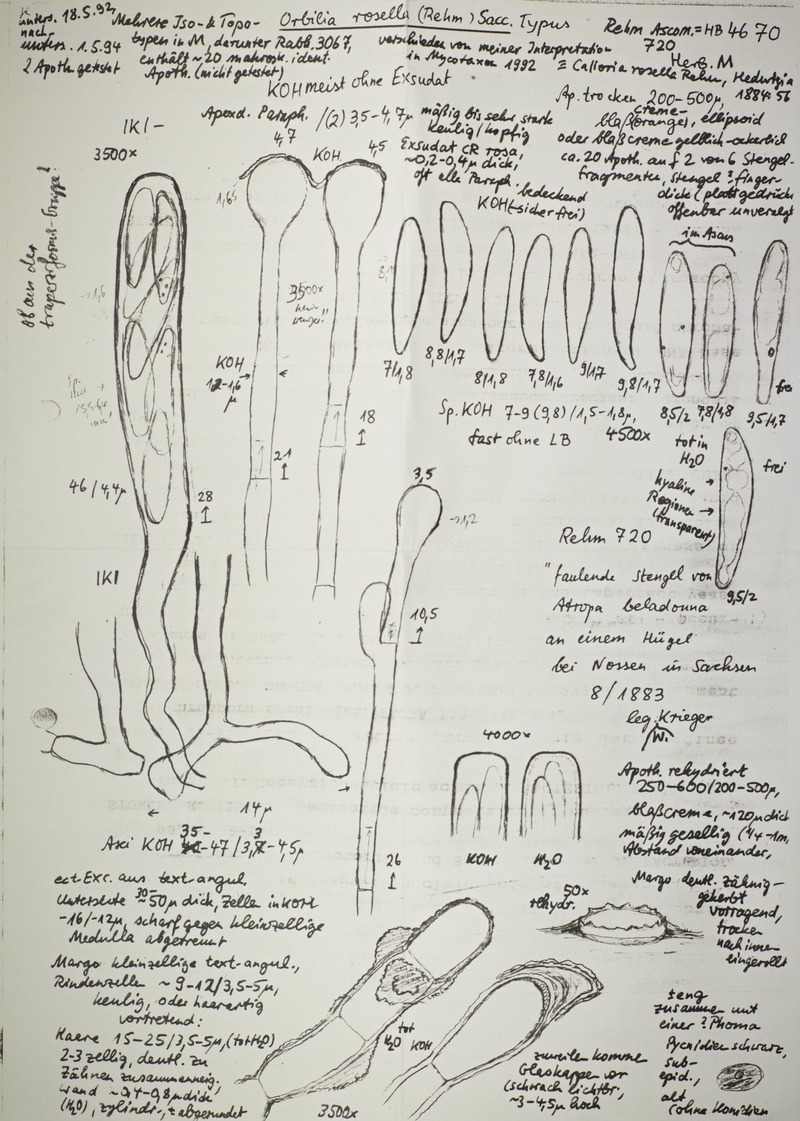 unters. 18.5.92,
nach
unters. 1.5.94
2 Apoth. getestet
Mehrere Iso- & Topo-
typen in M, darunter Rabh. 3067,
enthält ~20 makrosk. ident.
Apoth. (nicht getestet)
Orbilia rosella (Rehm) Sacc. Typus
verschieden von meiner Interpretation
in Mycotaxon 1992
Rehm Ascom. = HB 4670
720
Herb. M
≡ Calloria rosella Rehm, Hedwigia
1884: 56
KOH meist ohne Exsudat
Ap. trocken 200-500µ,
creme-
blaß(orange), ellipsoid
oder blaßcreme gelblich-ockerlich
ca. 20 Apoth. auf 2 von 6 Stengel-
fragmenten, Stengel ? finger-
dick (plattgedrückt
offenbar unverzweigt
Apexd. Paraph. /(2) 3,5-4,7µ mäßig bis sehr stark
keulig/kopfig
Exsudat CR rosa,
~0,2-0,4µ dick,
oft alle Paraph. bedeckend
KOH (-sicher frei)
IKI -
3500x
ob aus der
trapeziformis-Gruppe?
4,7
KOH
4,5
1,6
3500x
KOH
1,2-1,6
µ
21
18
46/4,4µ
28
IKI
7/1,8
8,8/1,7
8/1,8
7,8/1,6
9/1,7
9,8/1,7
im Ascus
8,5/2
7,8/1,8
9,5/1,7
frei
Sp. KOH 7-9 (9,8) / 1,5-1,8µ,
fast ohne LB
4500x
tot in
H₂O
hyaline →
Regionen →
(transparent)
frei
9,5/2
3,5
→1,2
10,5
26
Rehm 720
"faulende Stengel von
Atropa beladonna
an einem Hügel
bei Nossen in Sachsen
8/1883
leg. Krieger
W.
4000x
KOH
H₂O
14µ
35-
Asci KOH -47/3,3-4,5µ
Apoth. rehydriert
250-600/200-500µ,
blaßcreme, ~120µ dick
mäßig gesellig (1/4-1m,
Abstand voneinander,
Margo deutl. zähnig-
gekerbt
vorragend,
trocken
nach innen
eingerollt
50x
rehydr.
ect. Exc. aus text. angul.
Unterseite 30-~50µ dick, Zelle in KOH
-16/-12µ, scharf gegen kleinzellige
Medulla abgetrennt
Margo kleinzellige text. angul.,
Rindenzellen ~ 9-12/3,5-5µ,
keulig, oder haarartig
vortretend:
Haare 15-25/3,5-5µ, (tot H₂O)
2-3 zellig, deutl. zu
Zähnen zusammengeneigt,
Wand ~0,4-0,8µ dick
(H₂O), zylindr., ± abgerundet
tot
H₂O
KOH
3500x
zuweilen kommen
Glaskappen vor
(schwach lichtbr.,
~3-4,5µ hoch
streng
zusammen mit
einer ? Phoma
Pycnidien schwarz,
sub-
epid.,
alt
(ohne Konidien